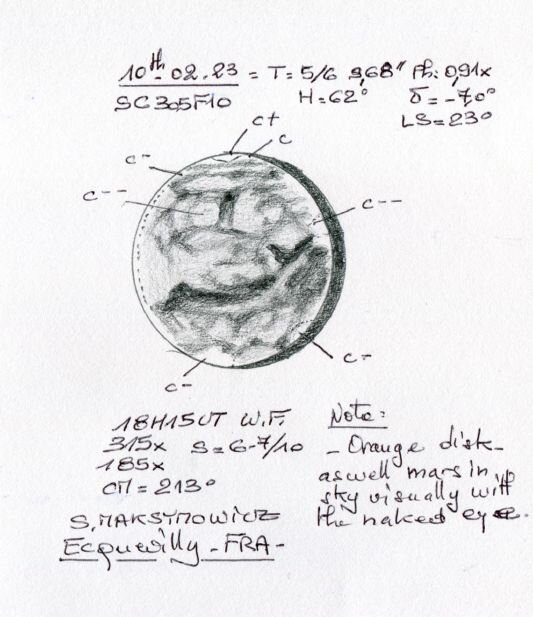 10th 02.23 = T: 5/6 9,68" Ph: 0,91x
SC305F10 H=62° δ=-7.0°
LS=23°
c+
c
c-
c--
c--
c-
c-
18H15UT W.F.
315x S=6-7/10
185x
CM=213°
S.MAKSYMOWICZ
Ecquevilly-FRA-
Note:
- Orange disk-
aswell mars in
sky visually with
the naked eye.